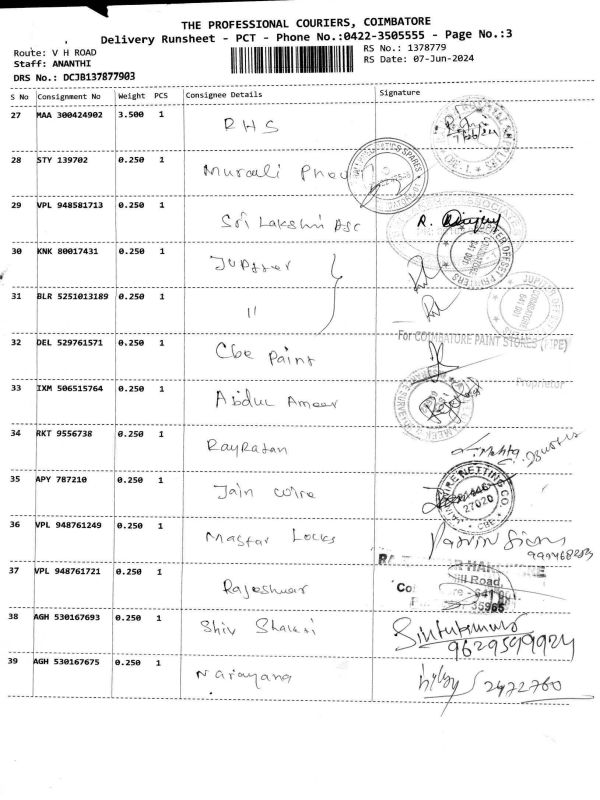 THE PROFESSIONAL COURIERS, COIMBATORE
Delivery Runsheet - PCT - Phone No.:0422-3505555 - Page No.:3
Route: V H ROAD
Staff: ANANTHI
DRS No.: DCJB137877903
RS No.: 1378779
RS Date: 07-Jun-2024
S No Consignment No Weight PCS Consignee Details Signature
27 MAA 300424902 3.500 1 RHS
28 STY 139702 0.250 1 Muraali
29 VPL 948581713 0.250 1 Sri Lakshmi Asc R.
30 KNK 80017431 0.250 1 Jupiter
31 BLR 5251013189 0.250 1 "
JUPITER OFFSET PRINTERS
COIMBATORE
641 001
32 DEL 529761571 0.250 1 Cbe Paint
For COIMBATORE PAINT STORES (PIPE)
Proprietor
33 IXM 506515764 0.250 1 Abdul Ameer
34 RKT 9556738 0.250 1 Rayratan
35 APY 787210 0.250 1 Jain wire
WIRE NETTING CO
27020
CBE
36 VPL 948761249 0.250 1 Mastar Locks
37 VPL 948761721 0.250 1 Rajeshwar
Mill Road,
641 001
35965
38 AGH 530167693 0.250 1 Shiv Shakti
9629599924
39 AGH 530167675 0.250 1 Narayana
2472760